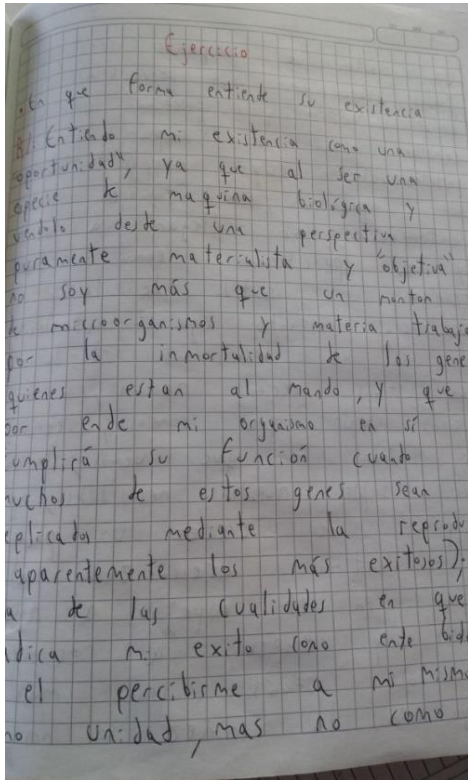 Ejercicio
.En que forma entiende su existencia
R/. Entiendo mi existencia como una
oportunidad", ya que al ser una
especie de maquina biológica y
viendolo desde una perspectiva
puramente materialista y "objetiva"
no soy más que un monton
de microorganismos y materia trabaja
por la inmortalidad de los gene
quienes estan al mando, y que
por ende mi organismo en sí
cumplirá su función cuando
muchos de estos genes sean
replicados mediante la reprodu
aparentemente los más exitosos);
a de las cualidades en que
adica mi exito como ente bio
el percibirme a mi mismo
mo unidad, mas no como